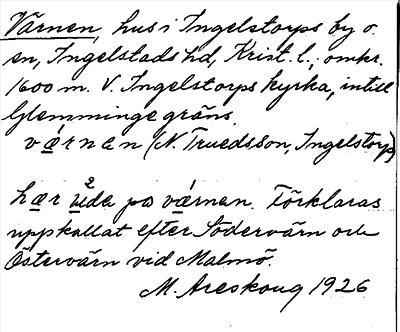 Värnen, hus i Ingelstorps by o.
en, Ingelstads hd, Krist. l., omkr.
1600 m. V. Ingelstorps kyrka, intill
Glemminge gräns.
vǽrnɛn (N. Truedsson, Ingelstorp)
hær ²ude po værnen. Förklaras
uppkallat efter Södervärn och
Östervärn vid Malmö.
M. Areskoug 1926